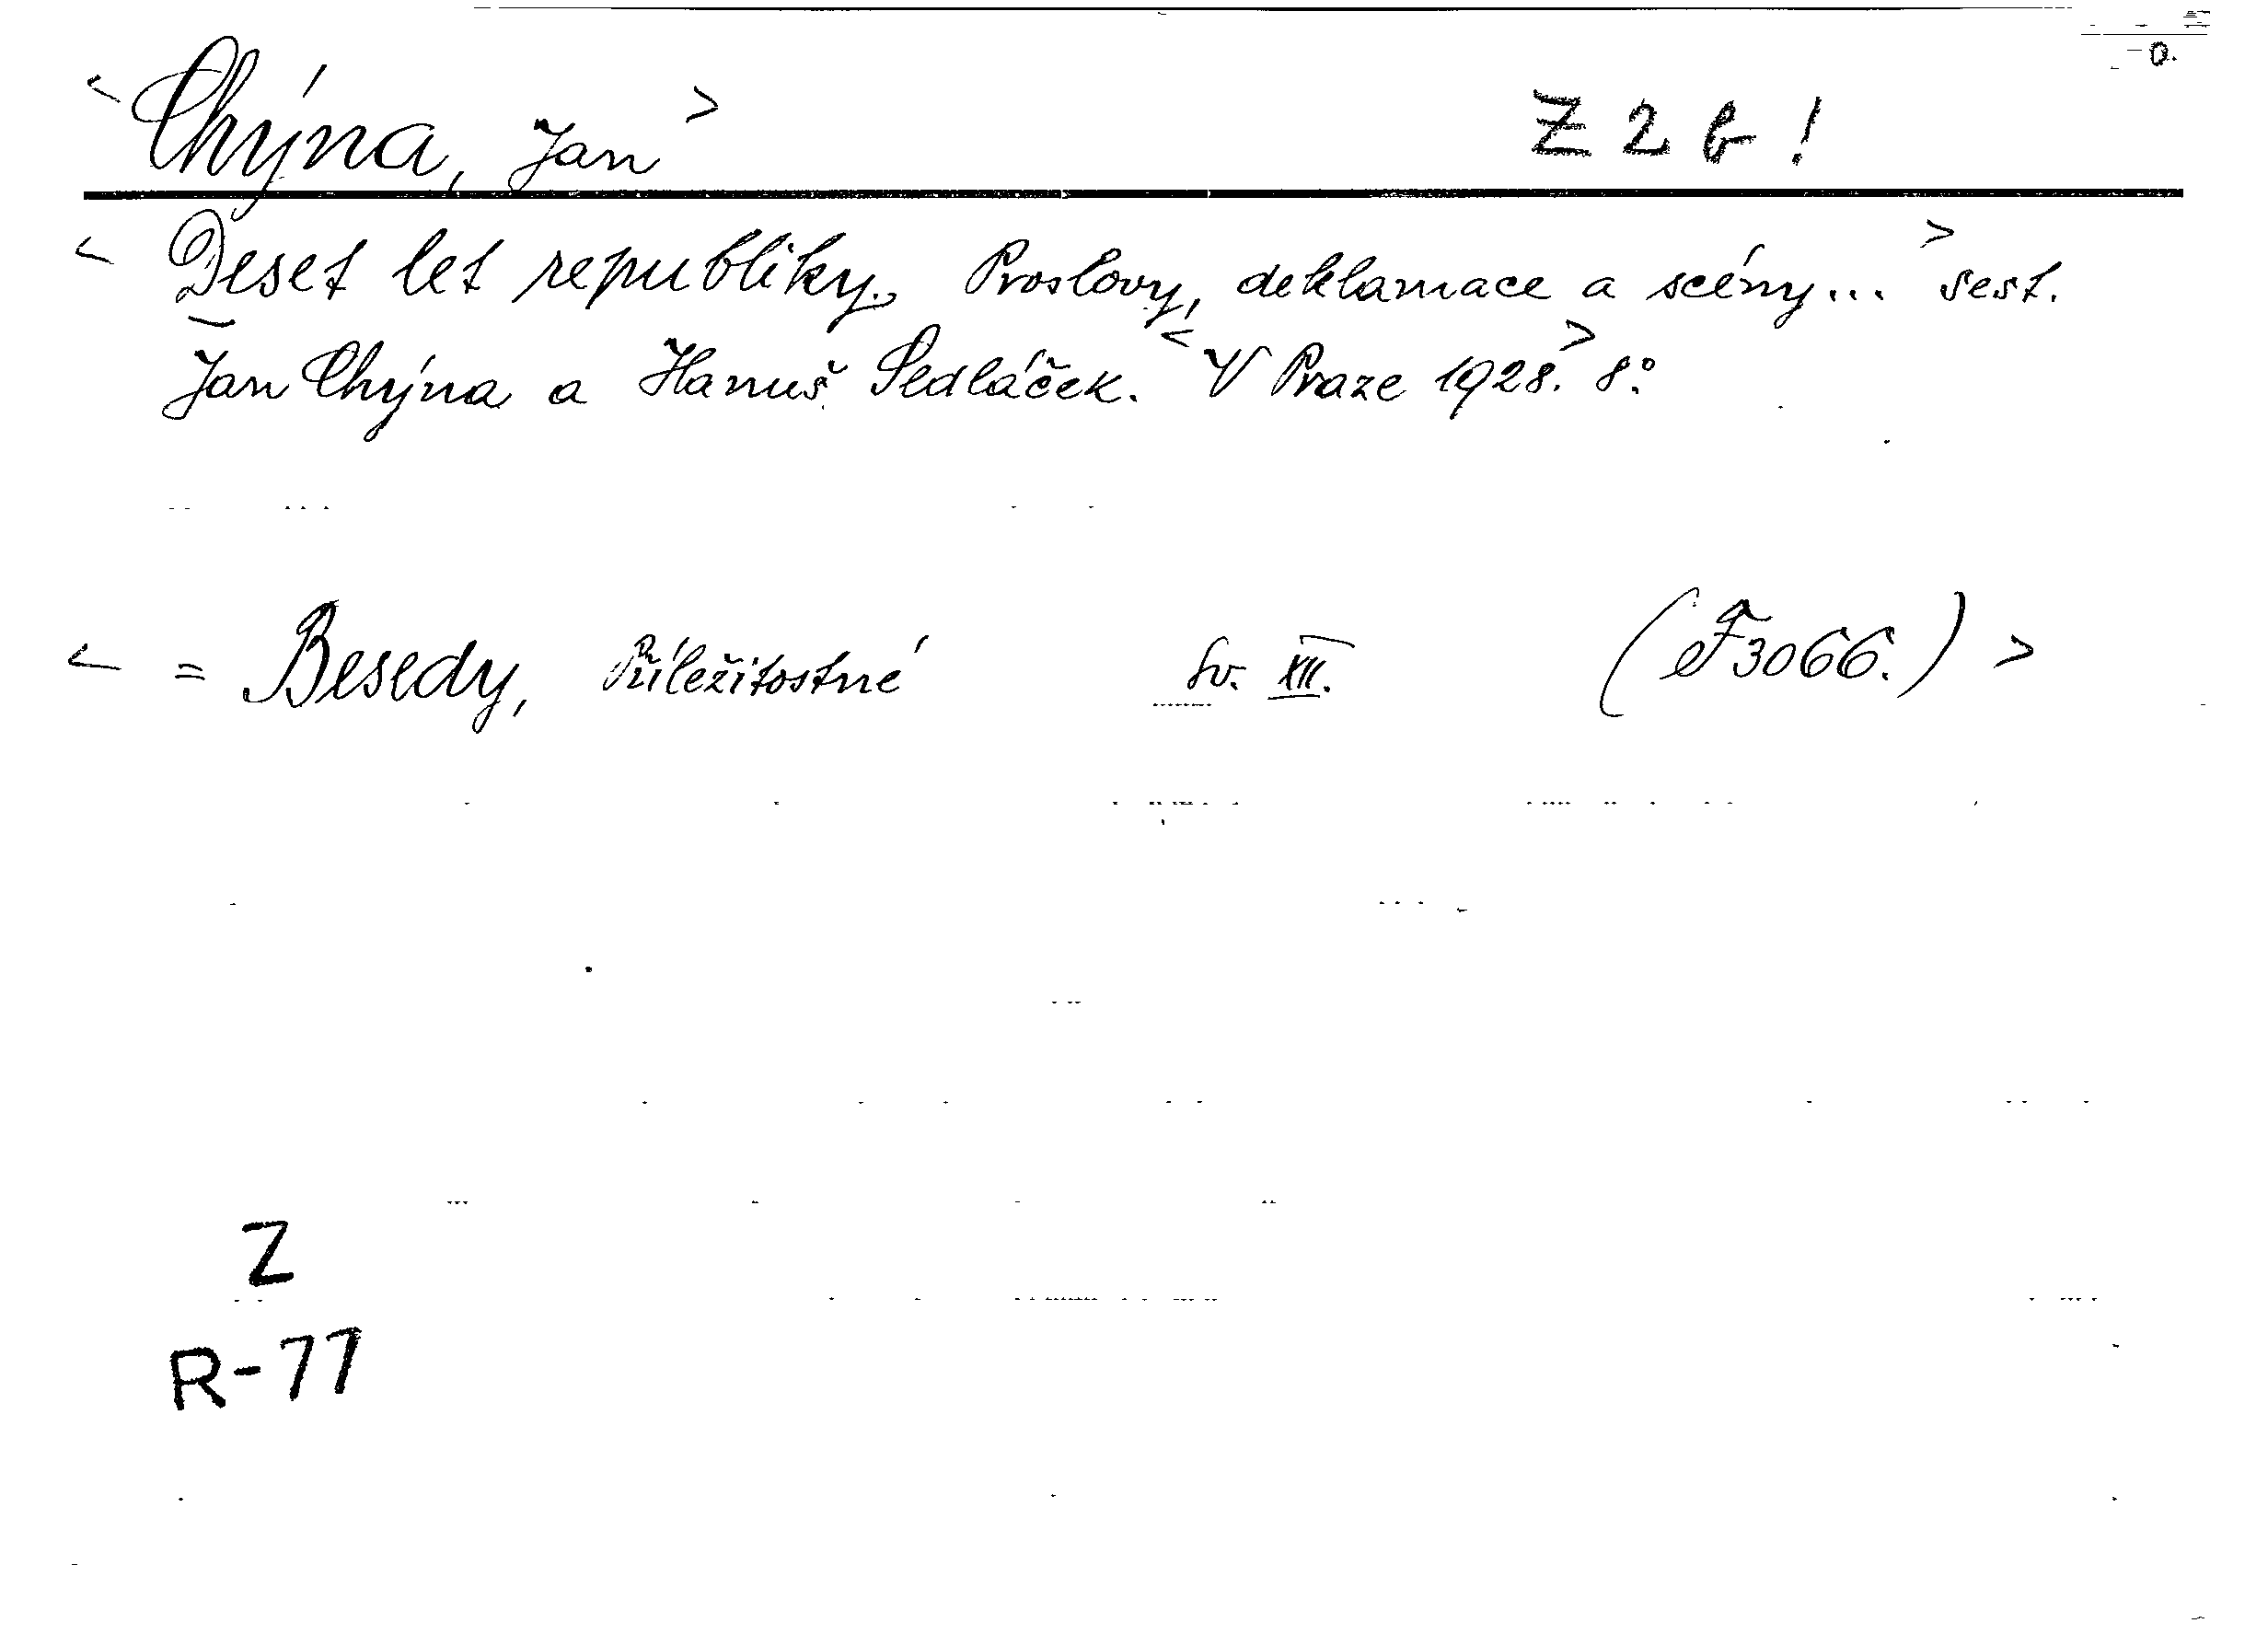 < Chýna, Jan > Z 2 b !
< Deset let republiky. Proslovy, deklamace a scény... > sest.
Jan Chýna a Hanuš Sedláček. < V Praze 1928. > 8.°
< = Besedy, Příležitostné Sv. XII. (F 3066.) >
Z
R-77